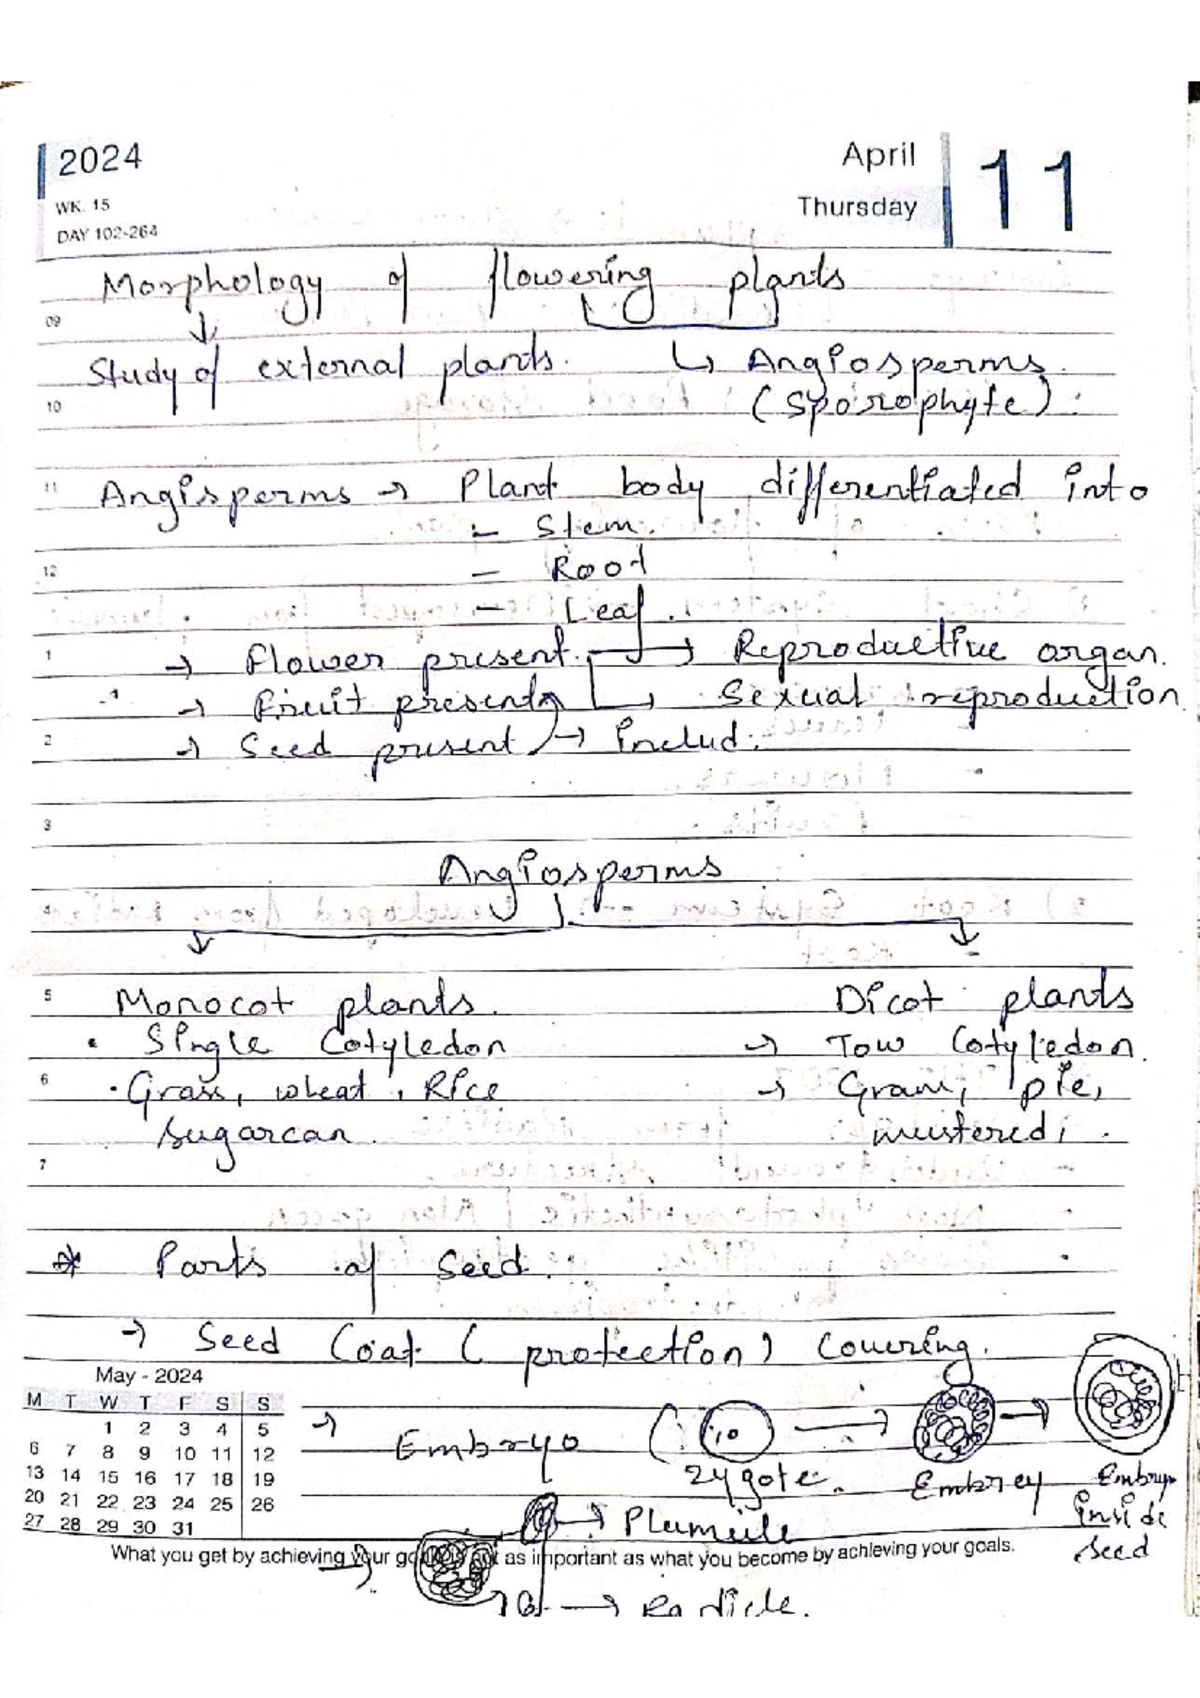 2024
WK. 15
DAY 102-264
April
Thursday
11
Morphology of flowering plants
09
Study of external plants. ↳ Angiosperms.
10
(Sporophyte).
11
Angisperms → Plant body differentiated into
- Stem.
12
- Root
- Leaf.
1
→ Flower present. → Reproductive organ.
→ Fruit present → Sexual reproduction
2
→ Seed present → includ.
3
Angiosperms
4
5
Monocot plants. Dicot plants
• Single Cotyledon → Tow Cotyledon.
6
• Grass, wheat, Rice → Gram, pie,
sugarcan. mustered,
7
* Parts of Seed.
→ Seed Coat ( protection) Covering.
May - 2024
M T W T F S S
1 2 3 4 5
6 7 8 9 10 11 12
13 14 15 16 17 18 19
20 21 22 23 24 25 26
27 28 29 30 31
→ Embryo ( → →
zygote. Embrey Embryo
inside
seed
→ Plumule
What you get by achieving your goals is not as important as what you become by achieving your goals.
→ Radicle.